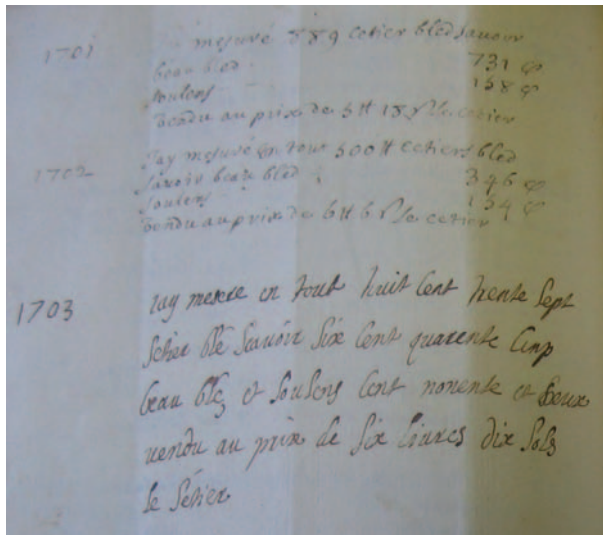 1701 mesuré 889 cetier bled savoir
beau bled 731 cp
soulens 158 cp
vendu au prix de 5 tt 18 s le cetier
1702 Jay mesuré en tout 500 tt cetiers bled
savoir beau bled 346 cp
soulens 154 cp
vendu au prix de 6 tt 6 s le cetier
1703 Jay mesure en tout huit cent trente sept
setier blé scavoir six cent quarente cinp
beau blé, et soulens cent nonente et deux
vendu au prix de six livres dix sols
le sétier